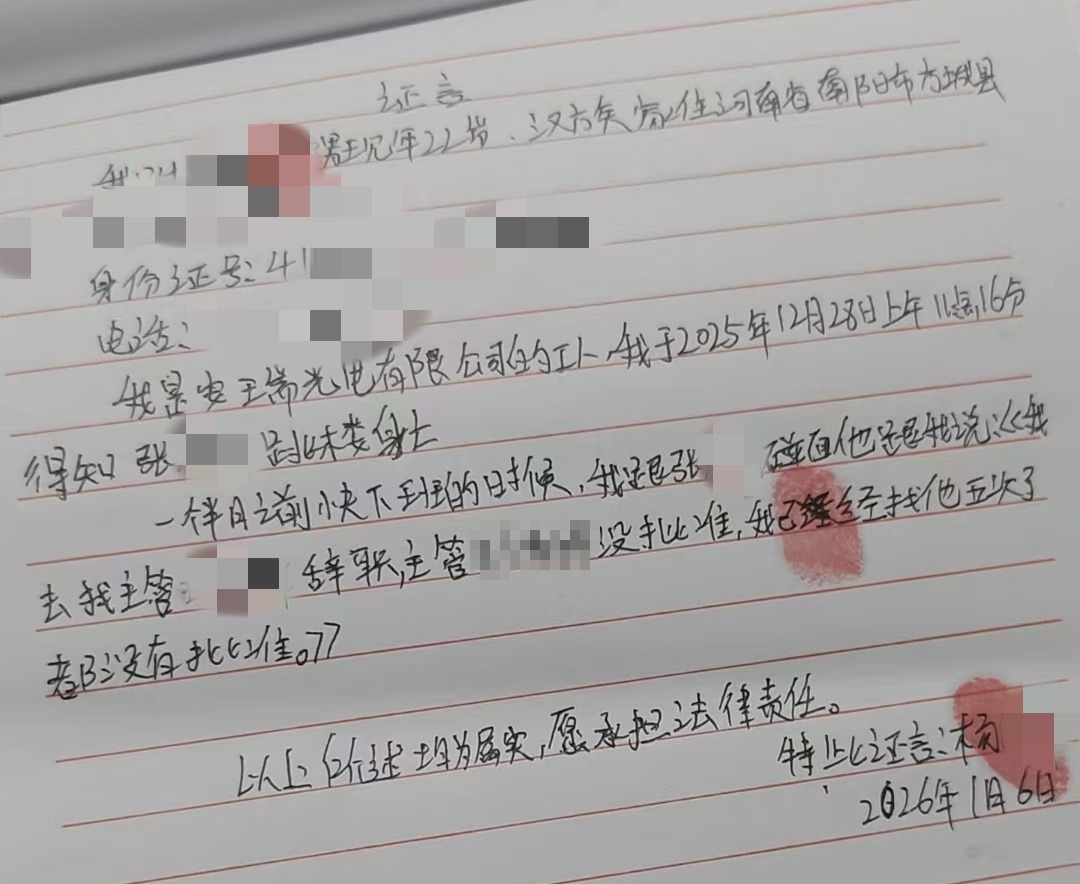 证言
我叫 男现年22岁、汉族家住河南省南阳市方城县
身份证号：41
电话：
我是安 瑞光电有限公司的工人，我于2025年12月28日上午11点16分
得知张 跳楼身亡
一个半月之前小夜下班的时候，我跟张 碰面他跟我说：《我
去找主管 辞职，主管 没批准，我已经找他五次了
都没有批准。》
以上所述均为属实，愿承担法律责任。
特此证言：杨
2026年1月6日